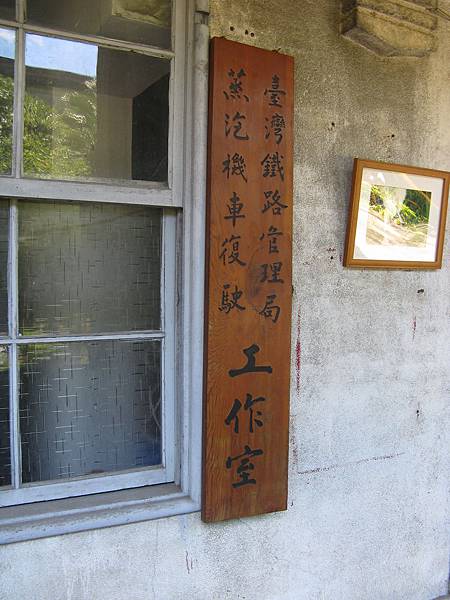 臺灣鐵路管理局
蒸汽機車復駛
工作室